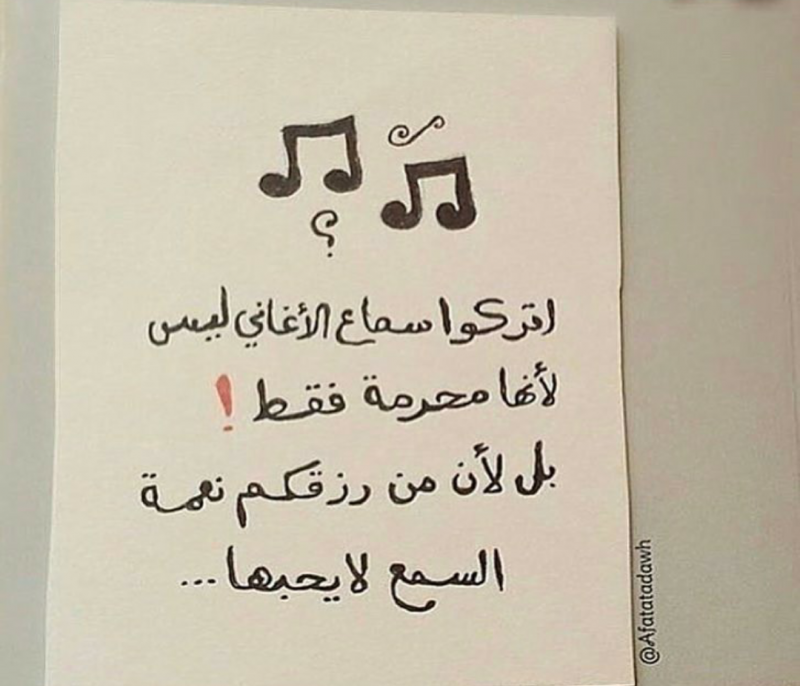 ؟
اتركوا سماع الأغاني ليس
لأنها محرمة فقط !
بل لأن من رزقكم نعمة
السمع لا يحبها ...
@Afatatadawh